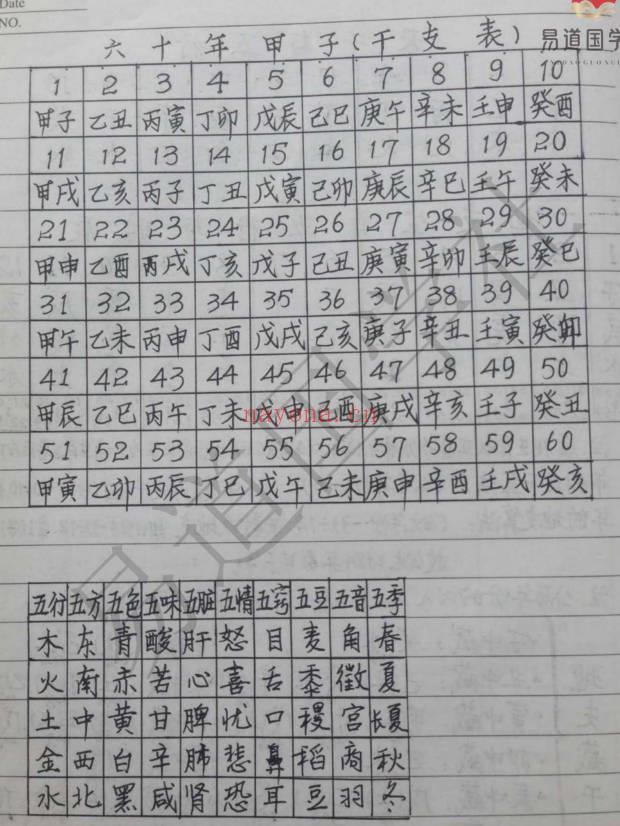 Date
NO.
易道国学
六十年甲子(干支表)
1 2 3 4 5 6 7 8 9 10
甲子 乙丑 丙寅 丁卯 戊辰 己巳 庚午 辛未 壬申 癸酉
11 12 13 14 15 16 17 18 19 20
甲戌 乙亥 丙子 丁丑 戊寅 己卯 庚辰 辛巳 壬午 癸未
21 22 23 24 25 26 27 28 29 30
甲申 乙酉 丙戌 丁亥 戊子 己丑 庚寅 辛卯 壬辰 癸巳
31 32 33 34 35 36 37 38 39 40
甲午 乙未 丙申 丁酉 戊戌 己亥 庚子 辛丑 壬寅 癸卯
41 42 43 44 45 46 47 48 49 50
甲辰 乙巳 丙午 丁未 戊申 己酉 庚戌 辛亥 壬子 癸丑
nayona.cn
51 52 53 54 55 56 57 58 59 60
甲寅 乙卯 丙辰 丁巳 戊午 己未 庚申 辛酉 壬戌 癸亥
易道国学社
五行 五方 五色 五味 五脏 五情 五窍 五豆 五音 五季
木 东 青 酸 肝 怒 目 麦 角 春
火 南 赤 苦 心 喜 舌 黍 徵 夏
土 中 黄 甘 脾 忧 口 稷 宫 长夏
金 西 白 辛 肺 悲 鼻 稻 商 秋
水 北 黑 咸 肾 恐 耳 豆 羽 冬